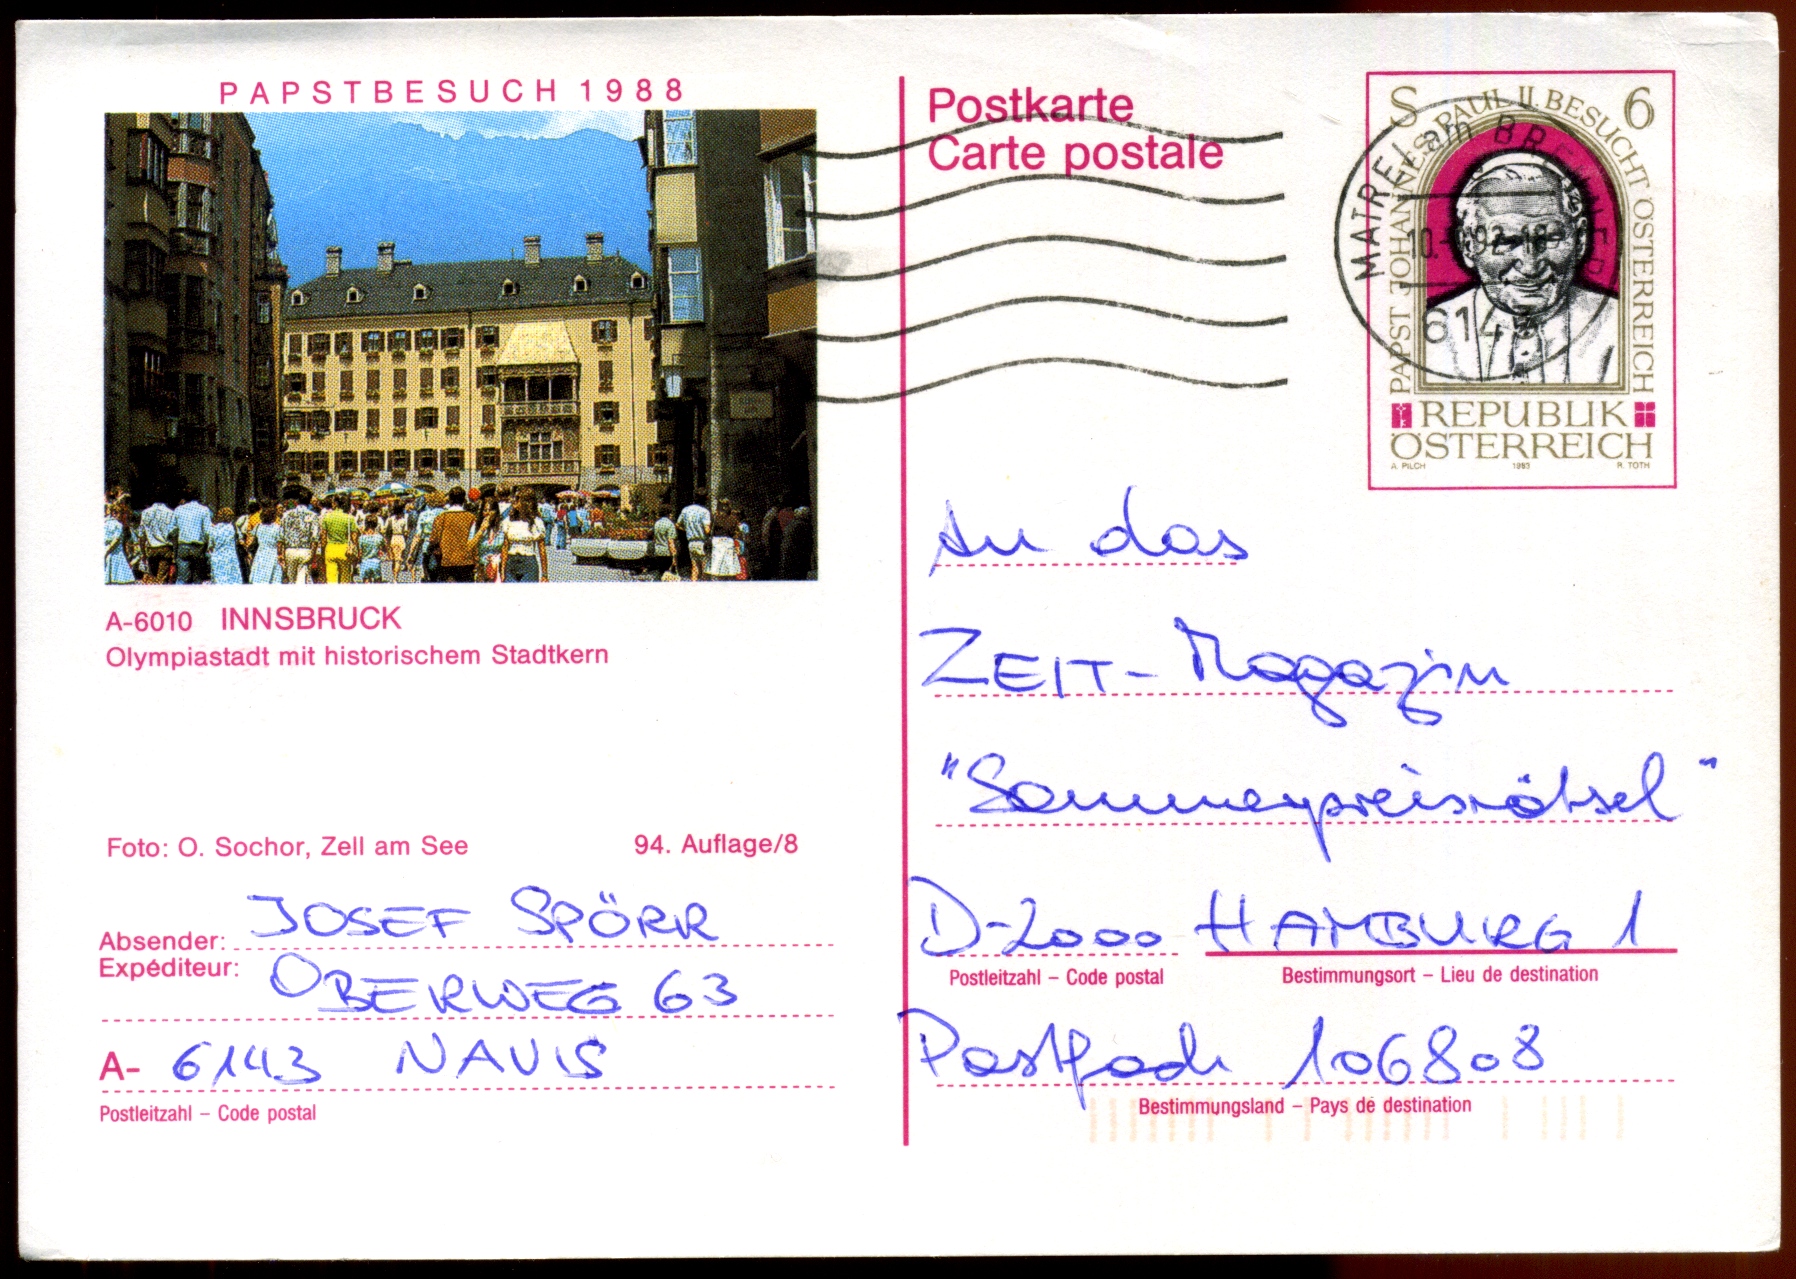 PAPSTBESUCH 1988
A-6010 INNSBRUCK
Olympiastadt mit historischem Stadtkern
Foto: O. Sochor, Zell am See 94. Auflage/8
Absender: JOSEF SPÖRR
Expéditeur: OBERWEG 63
A- 6143 NAVIS
Postleitzahl – Code postal
Postkarte
Carte postale
S 6
PAPST JOHANNES PAUL II. BESUCHT ÖSTERREICH
REPUBLIK
ÖSTERREICH
A. PILCH 1983 R. TOTH
MATREI am BRENNER
10. 92
614
An das
ZEIT-Magazin
"Sommerpreisrätsel"
D-2000 HAMBURG 1
Postleitzahl – Code postal Bestimmungsort – Lieu de destination
Postfach 106808
Bestimmungsland – Pays de destination